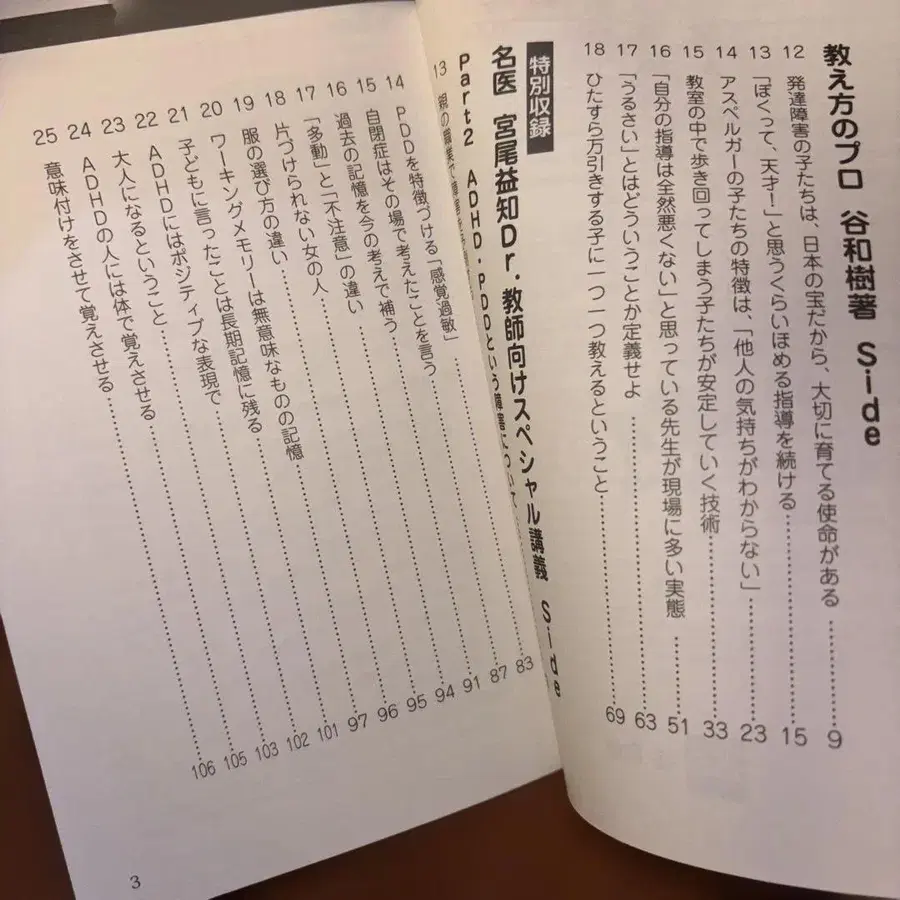 教え方のプロ 谷和樹著 Side
12 発達障害の子たちは、日本の宝だから、大切に育てる使命がある……9
13 「ぼくって、天才!」と思うくらいほめる指導を続ける……15
14 アスペルガーの子たちの特徴は、「他人の気持ちがわからない」……23
15 教室の中で歩き回ってしまう子たちが安定していく技術……33
16 「自分の指導は全然悪くない」と思っている先生が現場に多い実態……51
17 「うるさい」とはどういうことか定義せよ……63
18 ひたすら万引きする子に一つ一つ教えるということ……69
特別収録
名医 宮尾益知Dr.教師向けスペシャル講義 Side
Part2 ADHD・PDDという障害について
13 親の職業で障害を
14 PDDを特徴づける「感覚過敏」……83
15 自閉症はその場で考えたことを言う……87
16 過去の記憶を今の考えで補う……91
17 「多動」と「不注意」の違い……94
18 片づけられない女の人……95
19 服の選び方の違い……96
20 ワーキングメモリーは無意味なものの記憶……97
21 子どもに言ったことは長期記憶に残る……101
22 ADHDにはポジティブな表現で……102
23 大人になるということ……103
24 ADHDの人には体で覚えさせる……105
25 意味付けをさせて覚えさせる……106
3